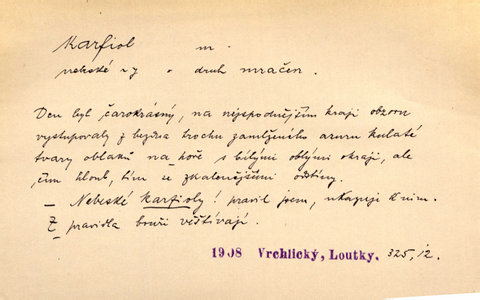 Karfiol m.
nebeské ~y = druh mračen.
Den byl čarokrásný, na nejspodnějším kraji obzoru
vystupovaly z bezdna trochu zamlženého azuru kulaté
tvary oblaků na hoře s bílými oblými okraji, ale
čím hloub, tím se zkalenějšími odstíny.
— Nebeské karfioly! pravil jsem, ukazuje k nim.
Z pravidla bouři věštívají.
1908 Vrchlický, Loutky. 325, 12.